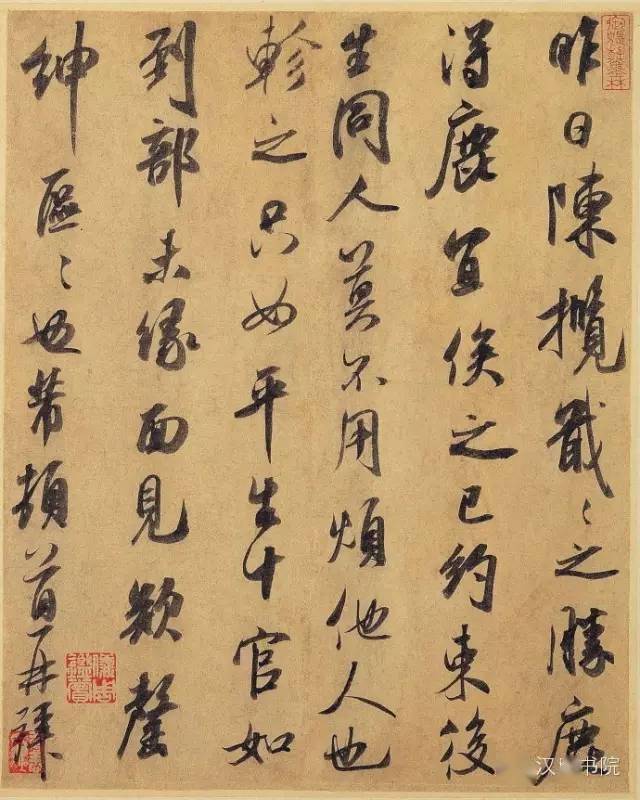 昨日陳攬戢〻之勝鹿
得鹿宜俟之已約束後
生同人莫不用煩他人也
軫之只如平生十官如
到部未緣面見欵罄
紳區〻也芾頓首再拜
汉 书院